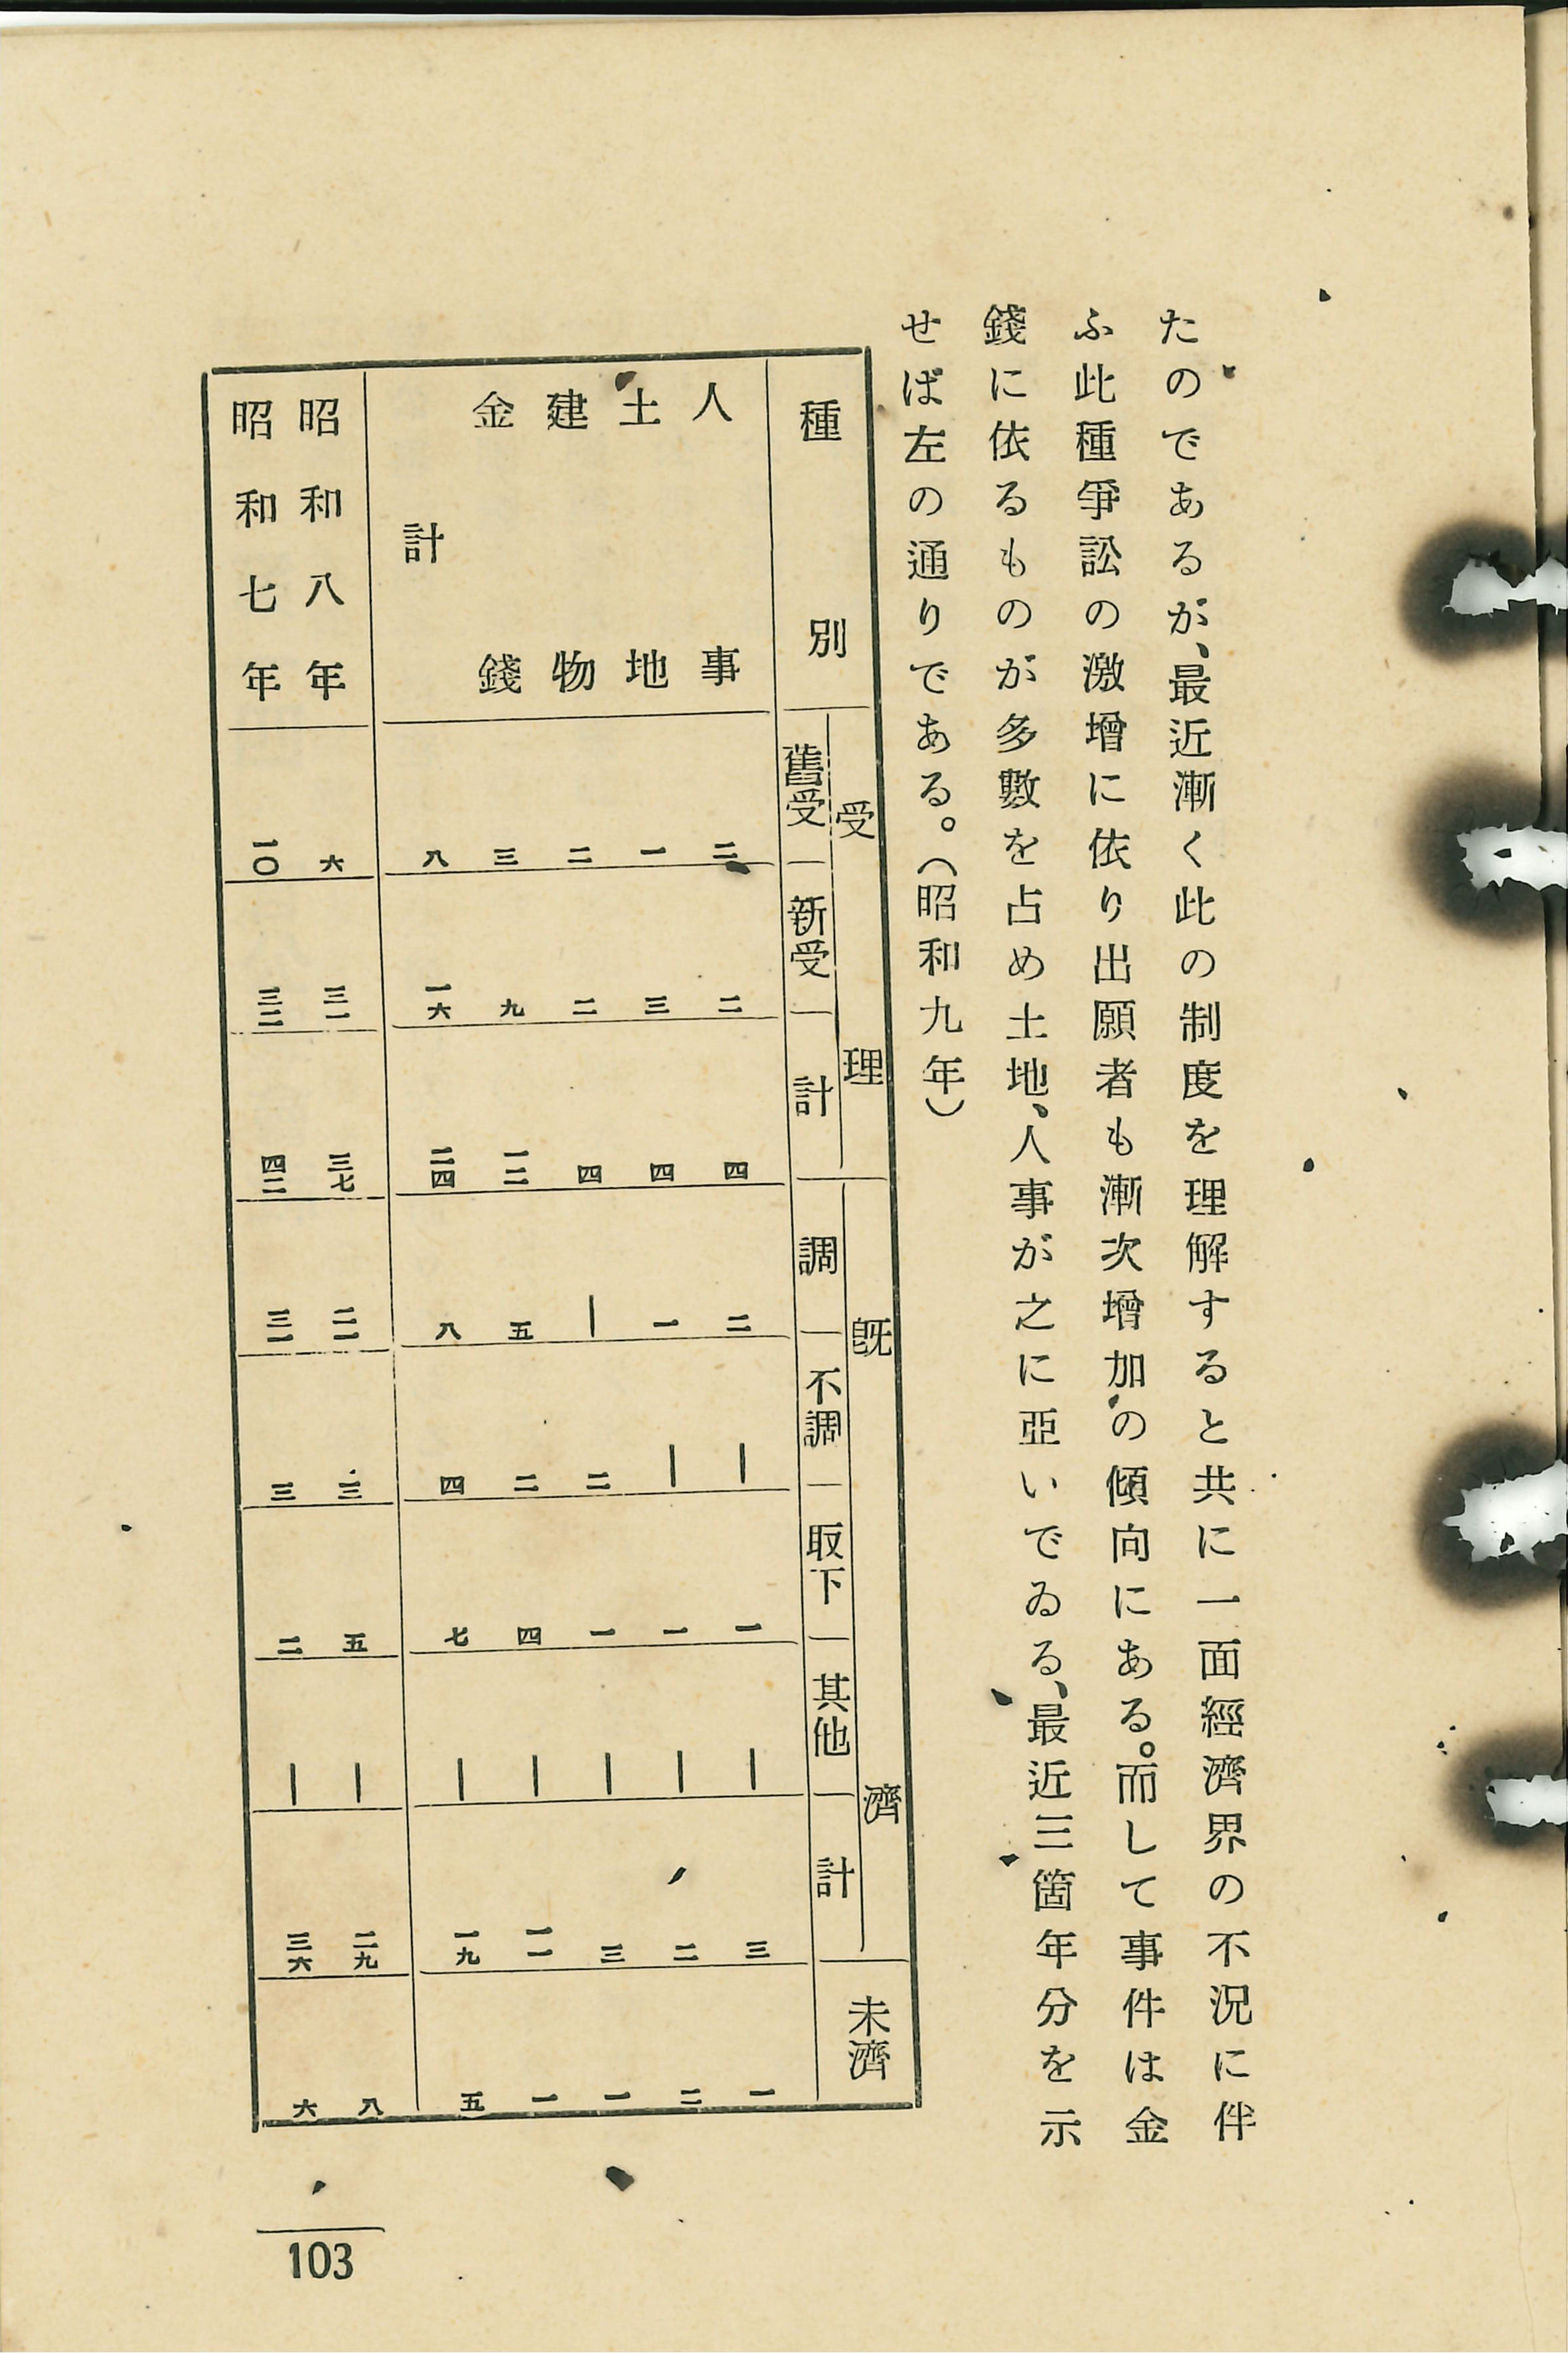 たのであるが、最近漸く此の制度を理解すると共に一面經濟界の不況に伴
ふ此種爭訟の激增に依り出願者も漸次增加の傾向にある。而して事件は金
錢に依るものが多數を占め土地、人事が之に亞いでゐる、最近三箇年分を示
せば左の通りである。(昭和九年)
受理 既濟 未濟
種別 舊受 新受 計 調 不調 取下 其他 計
人事 二 二 四 二 ― 一 ― 三 一
土地 一 三 四 一 ― 一 ― 二 二
建物 二 二 四 ― 二 一 ― 三 一
金錢 三 九 一二 五 二 四 ― 一一 一
計 八 一六 二四 八 四 七 ― 一九 五
昭和八年 六 三一 三七 二一 三 五 ― 二九 八
昭和七年 一〇 三二 四二 三一 三 二 ― 三六 六
103